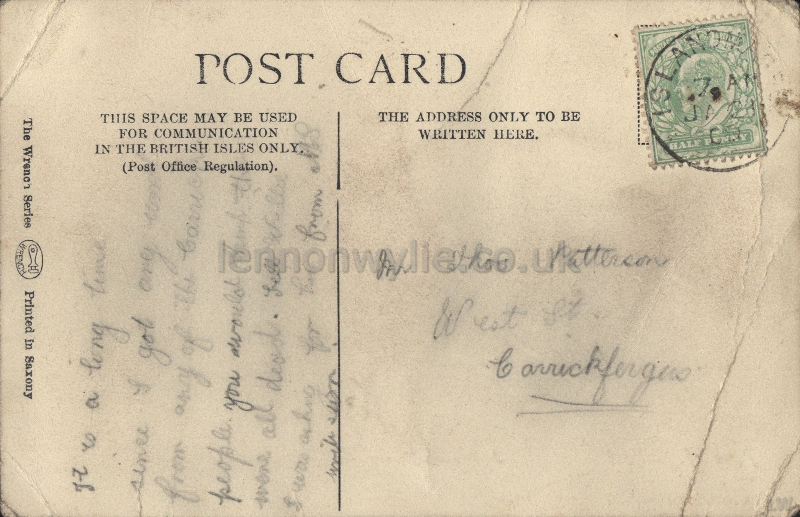 POST CARD
THIS SPACE MAY BE USED
FOR COMMUNICATION
IN THE BRITISH ISLES ONLY.
(Post Office Regulation).
THE ADDRESS ONLY TO BE
WRITTEN HERE.
ISLAND
7 AM
HALF PENNY
The Wrench Series
WRENCH
Printed in Saxony
It is a long time
since I got any
from any of the Carrick
people you would think
were all dead. Tell
I was asking for him from
write soon
Thos Patterson
West St.
Carrickfergus
lennonwylie.co.uk
LW